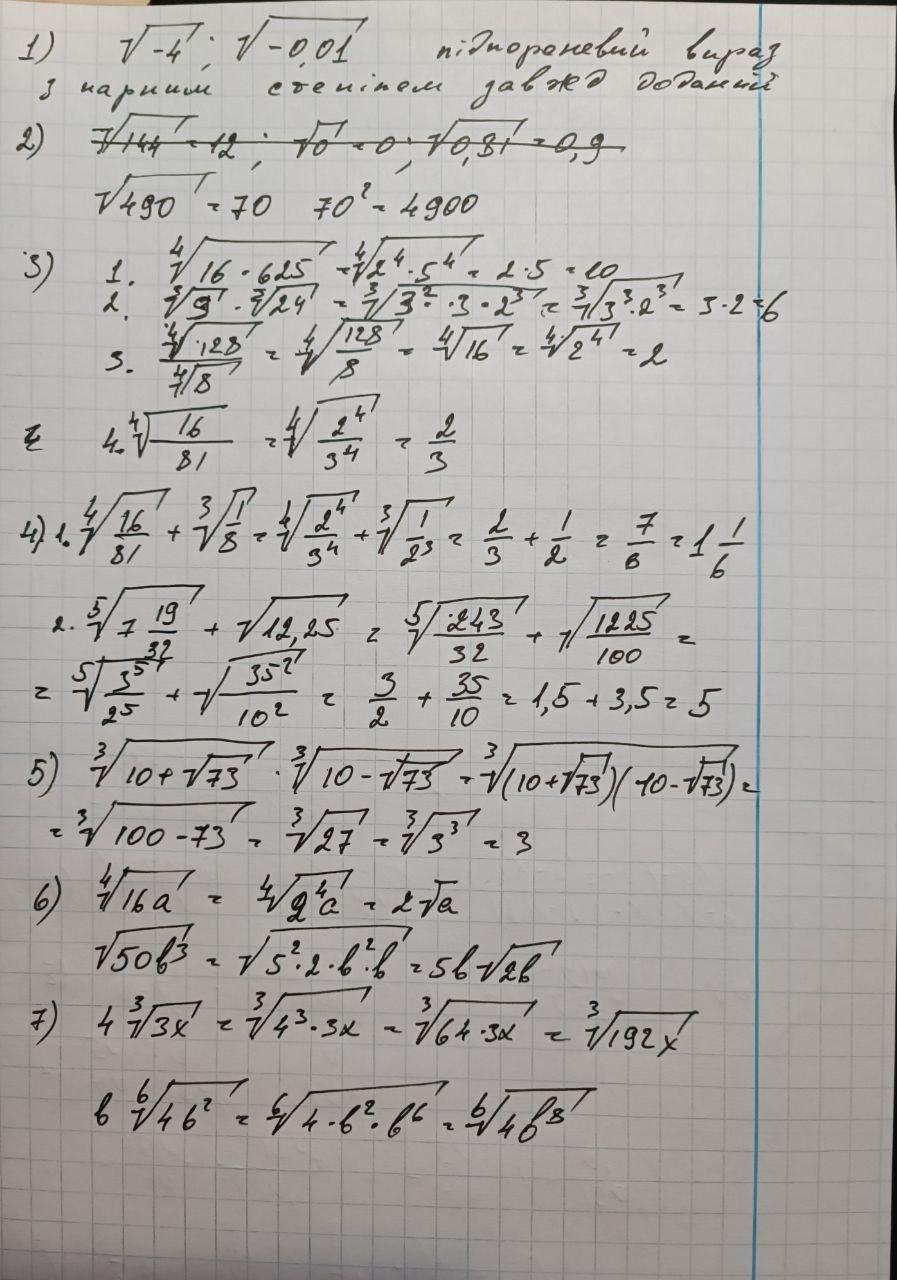 1) √-4 ; √-0,01 підкореневий вираз
з парним степінем завжд доданній
2) √144 = 12 ; √0 = 0 ; √0,81 = 0,9
√490 = 70 70² = 4900
3) 1. ⁴√16·625 = ⁴√2⁴·5⁴ = 2·5 = 10
2. ³√9 · ³√24 = ³√3²·3·2³ = ³√3³·2³ = 3·2 = 6
3. ⁴√128/⁴√8 = ⁴√128/8 = ⁴√16 = ⁴√2⁴ = 2
4. ⁴√16/81 = ⁴√2⁴/3⁴ = 2/3
4) 1. ⁴√16/81 + ³√1/8 = ⁴√2⁴/3⁴ + ³√1/2³ = 2/3 + 1/2 = 7/6 = 1 1/6
2. ⁵√7 19/32 + √12,25 = ⁵√243/32 + √1225/100 =
= ⁵√3⁵/2⁵ + √35²/10² = 3/2 + 35/10 = 1,5 + 3,5 = 5
5) ³√10+√73 · ³√10-√73 = ³√(10+√73)(10-√73) =
= ³√100-73 = ³√27 = ³√3³ = 3
6) ⁴√16a = ⁴√2⁴a = 2√a
√50b³ = √5²·2·b²·b = 5b√2b
7) 4 ³√3x = ³√4³·3x = ³√64·3x = ³√192x
b ⁶√4b² = ⁶√4·b²·b⁶ = ⁶√4b⁸